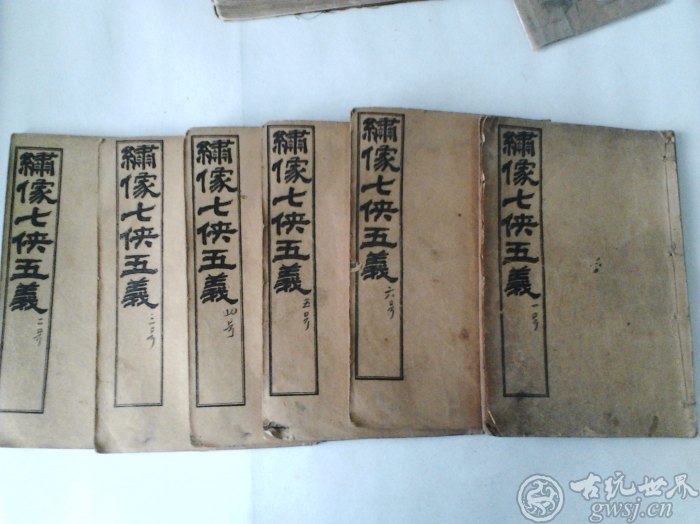 繡像七俠五義
二号
繡像七俠五義
三号
繡像七俠五義
四号
繡像七俠五義
五号
繡像七俠五義
六号
繡像七俠五義
一号
古玩世界
gwsj.cn